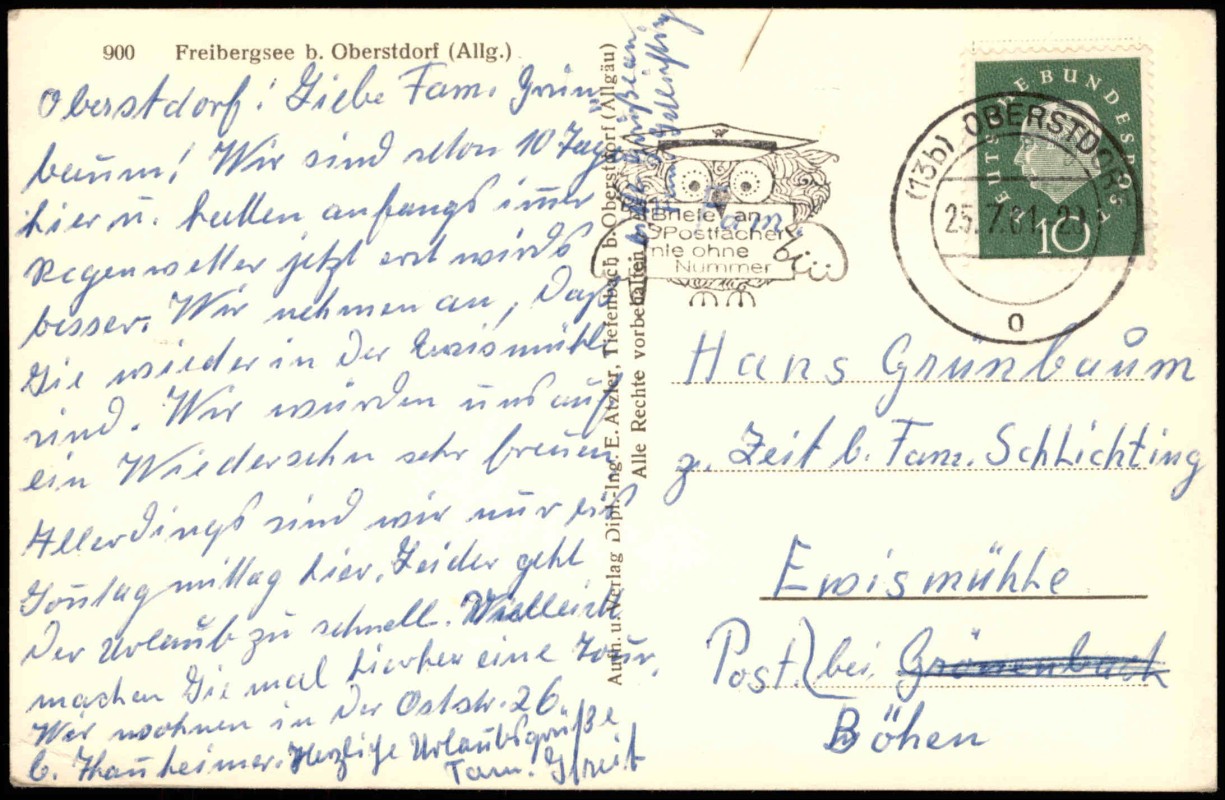 900 Freibergsee b. Oberstdorf (Allg.)
Oberstdorf! Liebe Fam. Grün
baum! Wir sind schon 10 Tage
hier u. hatten anfangs immer
Regenwetter jetzt erst wirds
besser. Wir nehmen an, daß
Sie wieder in der Ewismühle
sind. Wir würden uns auf
ein Wiedersehn sehr freuen
Allerdings sind wir nur bis
Sonntag mittag hier. Leider geht
der Urlaub zu schnell. Vielleicht
machen Sie mal hierher eine Tour.
Wir wohnen in der Oststr. 26.
b. Thanheimer. Herzliche Urlaubsgrüße
Fam. Streit
Auth. u. Verlag Dipl.-Ing. E. Atzler, Tiefenbach b. Oberstdorf (Allgäu)
Alle Rechte vorbehalten
Grüße an
Fam. Schlichting
Briefe an
Postfächer
nie ohne
Nummer
DEUTSCHE BUNDESPOST
10
(13b) OBERSTDORF
25.7.61.-20
o
Hans Grünbaum
z. Zeit b. Fam. Schlichting
Ewismühle
Post) bei Grönenbach
Böhen